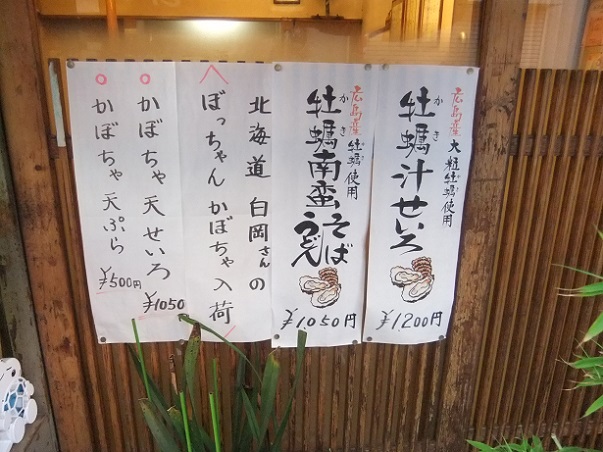 広島産 大粒牡蠣使用
牡蠣汁せいろ
かき
¥1,200円
広島産 牡蠣使用
牡蠣南蛮そば
うどん
かき
¥1,050円
北海道 白岡さんの
ぼっちゃんかぼちゃ入荷
かぼちゃ天せいろ
¥1050
かぼちゃ天ぷら
¥500円